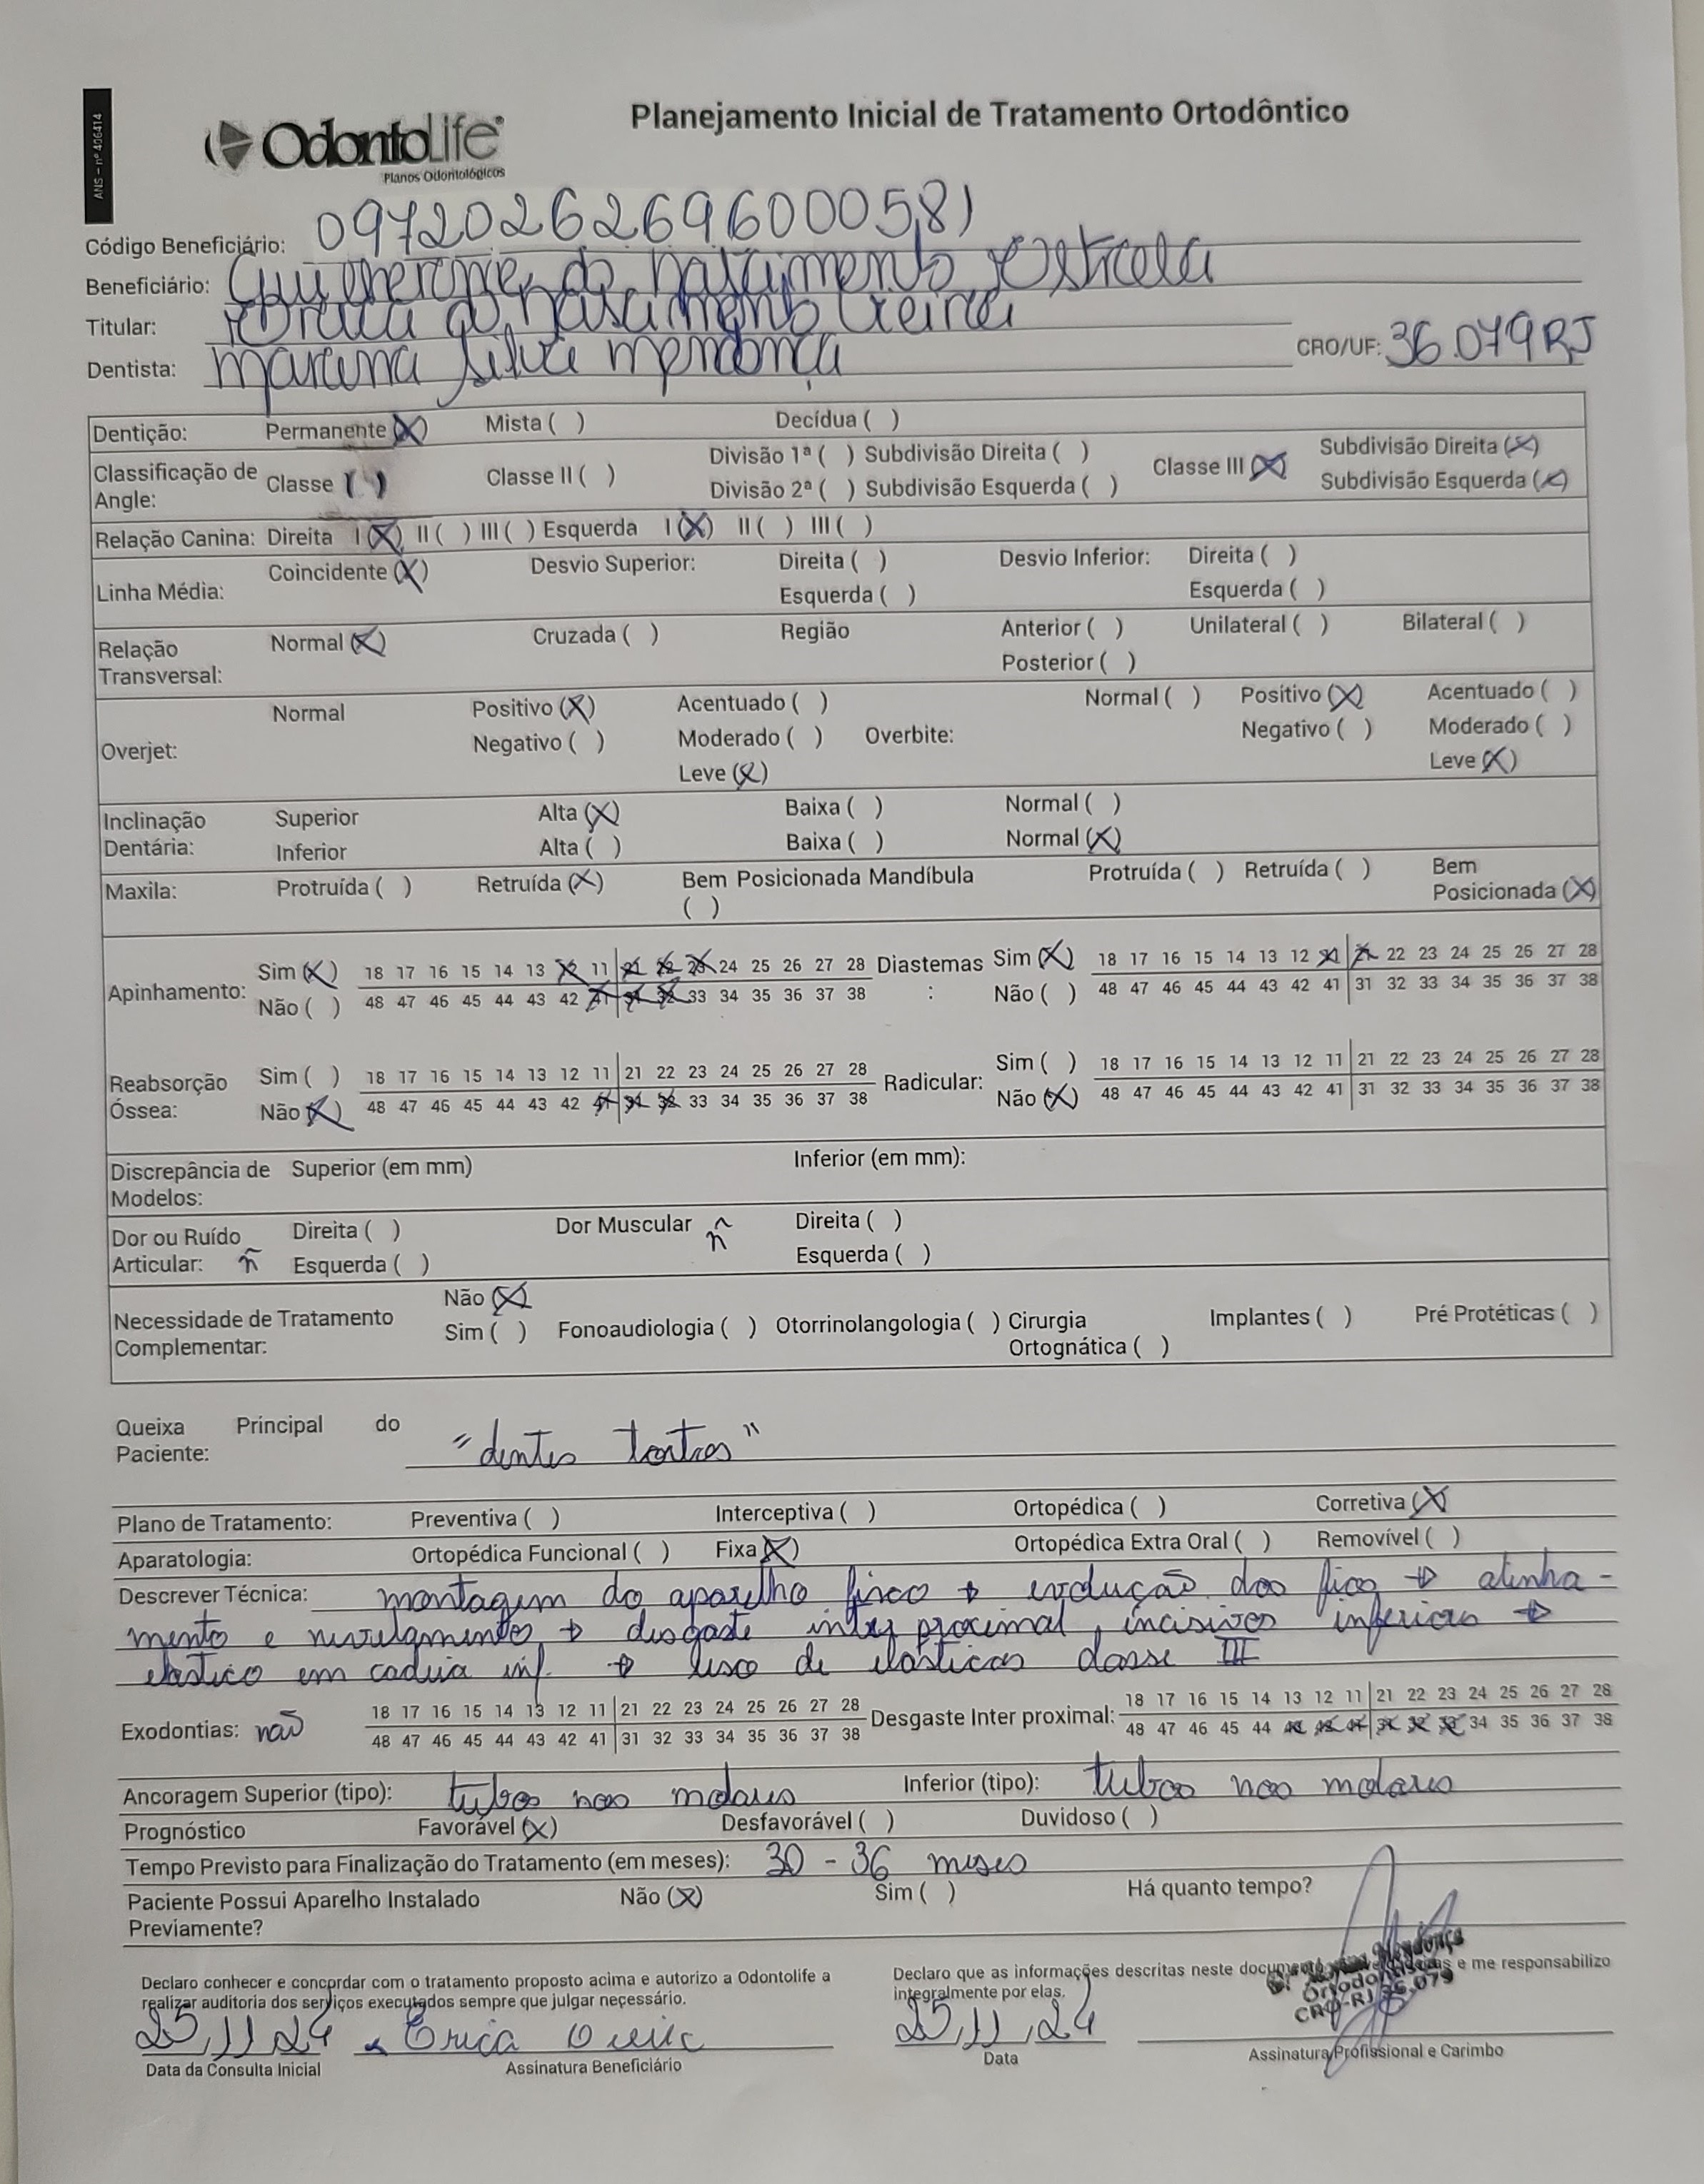 ANS – nº 406414
OdontoLife®
Planos Odontológicos
Planejamento Inicial de Tratamento Ortodôntico
Código Beneficiário: 0972026269600058)
Beneficiário: Guilherme do nascimento Estrela
Titular: do nascimento
Dentista: Silva mendonça CRO/UF: 36.079RJ
Dentição: Permanente (X) Mista ( ) Decídua ( )
Classificação de Angle: Classe I ( ) Classe II ( ) Divisão 1ª ( ) Subdivisão Direita ( ) Classe III (X) Subdivisão Direita (X)
Divisão 2ª ( ) Subdivisão Esquerda ( ) Subdivisão Esquerda (X)
Relação Canina: Direita I (X) II ( ) III ( ) Esquerda I (X) II ( ) III ( )
Linha Média: Coincidente (X) Desvio Superior: Direita ( ) Desvio Inferior: Direita ( )
Esquerda ( ) Esquerda ( )
Relação Transversal: Normal (X) Cruzada ( ) Região Anterior ( ) Unilateral ( ) Bilateral ( )
Posterior ( )
Overjet: Normal Positivo (X) Acentuado ( ) Overbite: Normal ( ) Positivo (X) Acentuado ( )
Negativo ( ) Moderado ( ) Negativo ( ) Moderado ( )
Leve (X) Leve (X)
Inclinação Dentária: Superior Alta (X) Baixa ( ) Normal ( )
Inferior Alta ( ) Baixa ( ) Normal (X)
Maxila: Protruída ( ) Retruída (X) Bem Posicionada ( ) Mandíbula Protruída ( ) Retruída ( ) Bem Posicionada (X)
Apinhamento: Sim (X) 18 17 16 15 14 13 12 11 21 22 23 24 25 26 27 28 Diastemas: Sim (X) 18 17 16 15 14 13 12 11 21 22 23 24 25 26 27 28
Não ( ) 48 47 46 45 44 43 42 41 31 32 33 34 35 36 37 38 Não ( ) 48 47 46 45 44 43 42 41 31 32 33 34 35 36 37 38
Reabsorção Óssea: Sim ( ) 18 17 16 15 14 13 12 11 21 22 23 24 25 26 27 28 Radicular: Sim ( ) 18 17 16 15 14 13 12 11 21 22 23 24 25 26 27 28
Não (X) 48 47 46 45 44 43 42 41 31 32 33 34 35 36 37 38 Não (X) 48 47 46 45 44 43 42 41 31 32 33 34 35 36 37 38
Discrepância de Modelos: Superior (em mm) Inferior (em mm):
Dor ou Ruído Articular: ñ Direita ( ) Dor Muscular ñ Direita ( )
Esquerda ( ) Esquerda ( )
Necessidade de Tratamento Complementar: Não (X)
Sim ( ) Fonoaudiologia ( ) Otorrinolangologia ( ) Cirurgia Ortognática ( ) Implantes ( ) Pré Protéticas ( )
Queixa Principal do Paciente: "dentes tortos"
Plano de Tratamento: Preventiva ( ) Interceptiva ( ) Ortopédica ( ) Corretiva (X)
Aparatologia: Ortopédica Funcional ( ) Fixa (X) Ortopédica Extra Oral ( ) Removível ( )
Descrever Técnica: montagem do aparelho fixo → evolução dos fios → alinha-
mento e nivelamento → desgaste interproximal, incisivos inferiores →
elástico em cadeia inf. → uso de elásticos classe III
Exodontias: não 18 17 16 15 14 13 12 11 21 22 23 24 25 26 27 28 Desgaste Inter proximal: 18 17 16 15 14 13 12 11 21 22 23 24 25 26 27 28
48 47 46 45 44 43 42 41 31 32 33 34 35 36 37 38 48 47 46 45 44 43 42 41 31 32 33 34 35 36 37 38
Ancoragem Superior (tipo): tubos nos molares Inferior (tipo): tubos nos molares
Prognóstico Favorável (X) Desfavorável ( ) Duvidoso ( )
Tempo Previsto para Finalização do Tratamento (em meses): 30 - 36 meses
Paciente Possui Aparelho Instalado Previamente? Não (X) Sim ( ) Há quanto tempo?
Declaro conhecer e concordar com o tratamento proposto acima e autorizo a Odontolife a
realizar auditoria dos serviços executados sempre que julgar necessário.
Declaro que as informações descritas neste documento e me responsabilizo
integralmente por elas.
Mendonça
Ortodontista
CRO-RJ 36.079
25,11,24 Erica
25,11,24
Data da Consulta Inicial Assinatura Beneficiário Data Assinatura Profissional e Carimbo